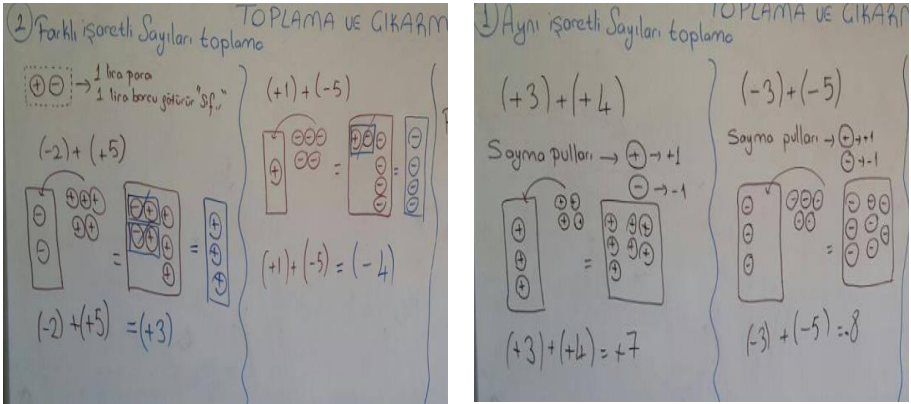 TOPLAMA VE ÇIKARM
2 Farklı işaretli Sayıları toplama
1 lira para
1 lira borcu götürür "Sıf.."
(-2) + (+5)
=
=
(-2) + (+5) = (+3)
(+1) + (-5)
=
=
(+1) + (-5) = (-4)
TOPLAMA VE ÇIKARM
1 Aynı işaretli Sayıları toplama
(+3) + (+4)
Sayma pulları → + → +1
- → -1
=
(+3) + (+4) = +7
(-3) + (-5)
Sayma pulları → + → +1
- → -1
=
(-3) + (-5) = -8